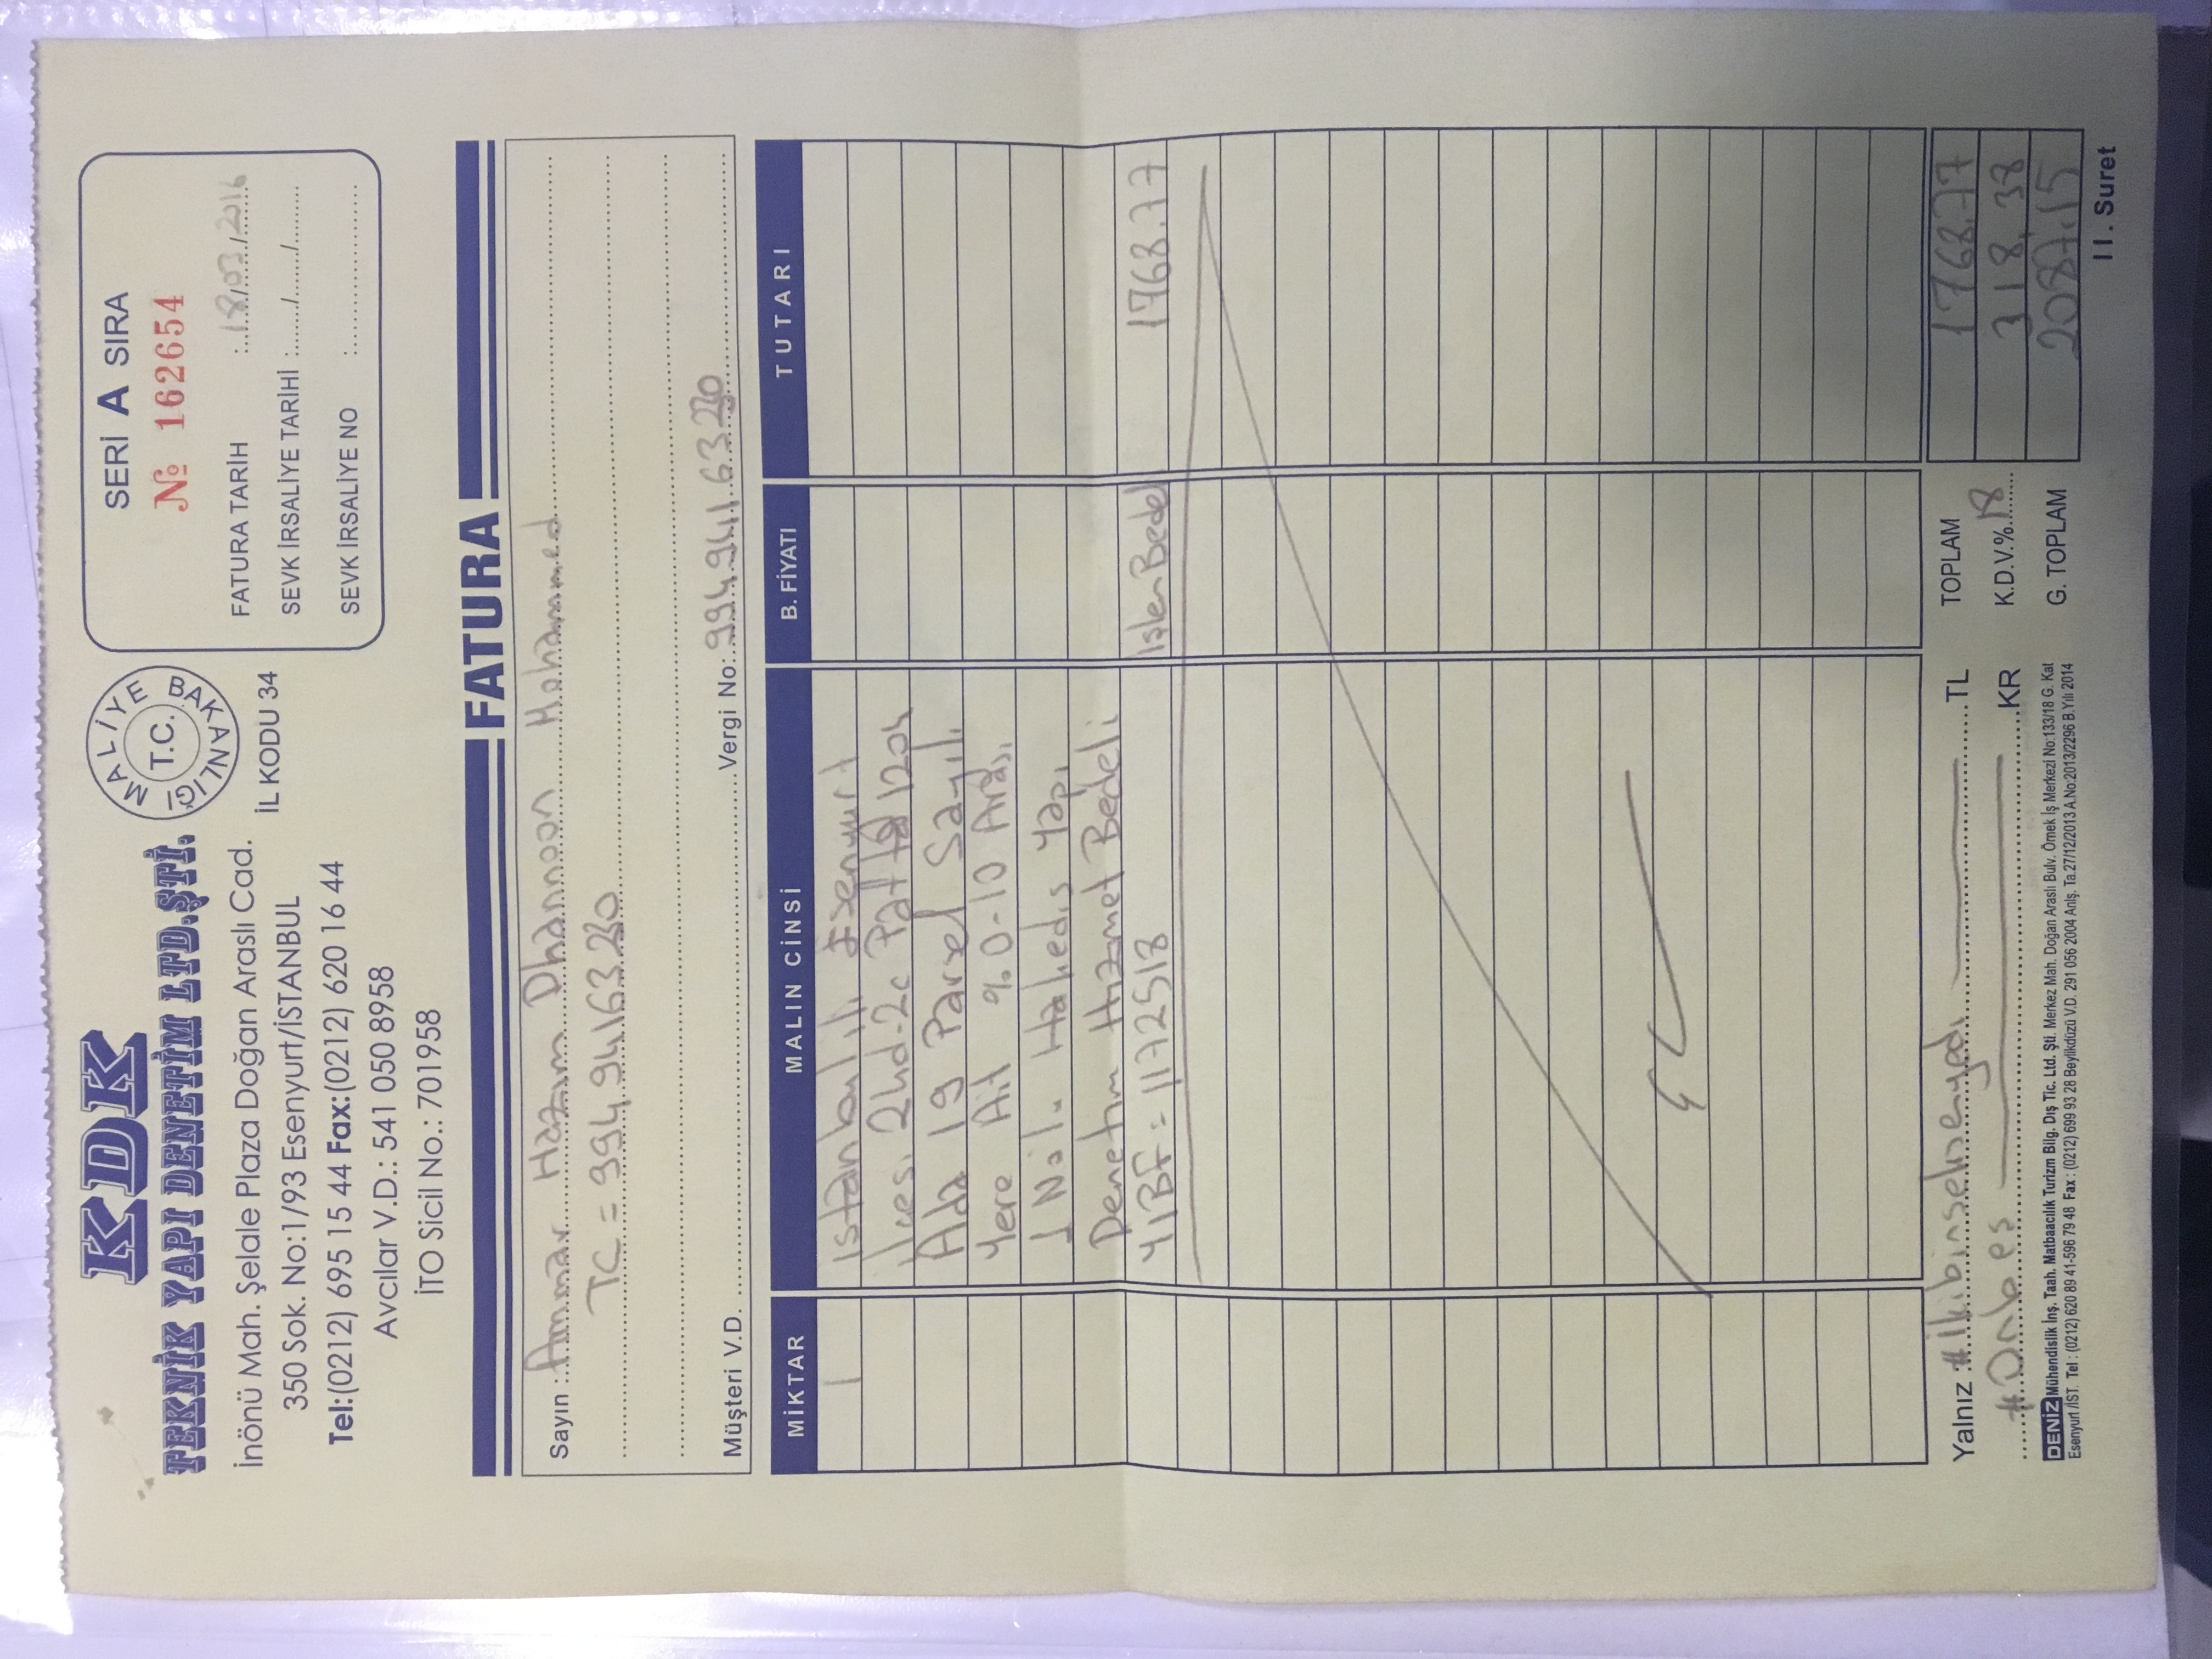 KDK
TEKNİK YAPI DENETİM LTD.ŞTİ.
İnönü Mah. Şelale Plaza Doğan Araslı Cad.
350 Sok. No:1/93 Esenyurt/İSTANBUL
Tel:(0212) 695 15 44 Fax:(0212) 620 16 44
Avcılar V.D.: 541 050 8958
İTO Sicil No.: 701958
T.C. MALİYE BAKANLIĞI
İL KODU 34
SERİ A SIRA
№ 162654
FATURA TARİH : 18/03/2016
SEVK İRSALİYE TARİHİ : ....../....../......
SEVK İRSALİYE NO :
FATURA
Sayın : Ammar Hazım Dhannoon Mohammed
TC = 99494416320
Müşteri V.D. Vergi No:
MİKTAR MALIN CİNSİ B. FİYATI TUTARI
1 İstanbul ili Esenyurt
ilçesi 24hd-2c Pafta 1204
Ada 19 Parsel Sayılı
Yere Ait %0-10 Arası
1 Nolu Hakediş Yapı
Denetim Hizmet Bedeli
YIBF = 1172518 İşlem Bedel 1768.77
Yalnız : # İkibinseksenyedi TL
# Onbeş KR
TOPLAM 1768.77
K.D.V.% 18 318,38
G. TOPLAM 2087.15
DENİZ Mühendislik İnş. Taah. Matbaacılık Turizm Bilg. Dış Tic. Ltd. Şti. Merkez Mah. Doğan Araslı Bulv. Örnek İş Merkezi No:133/18 G. Kat
Esenyurt /İST. Tel : (0212) 620 89 41-596 79 48 Fax : (0212) 699 93 28 Beylikdüzü V.D. 291 056 2004 Anlş. Ta.27/12/2013 A.No:2013/2296 B.Yılı 2014
II. Suret